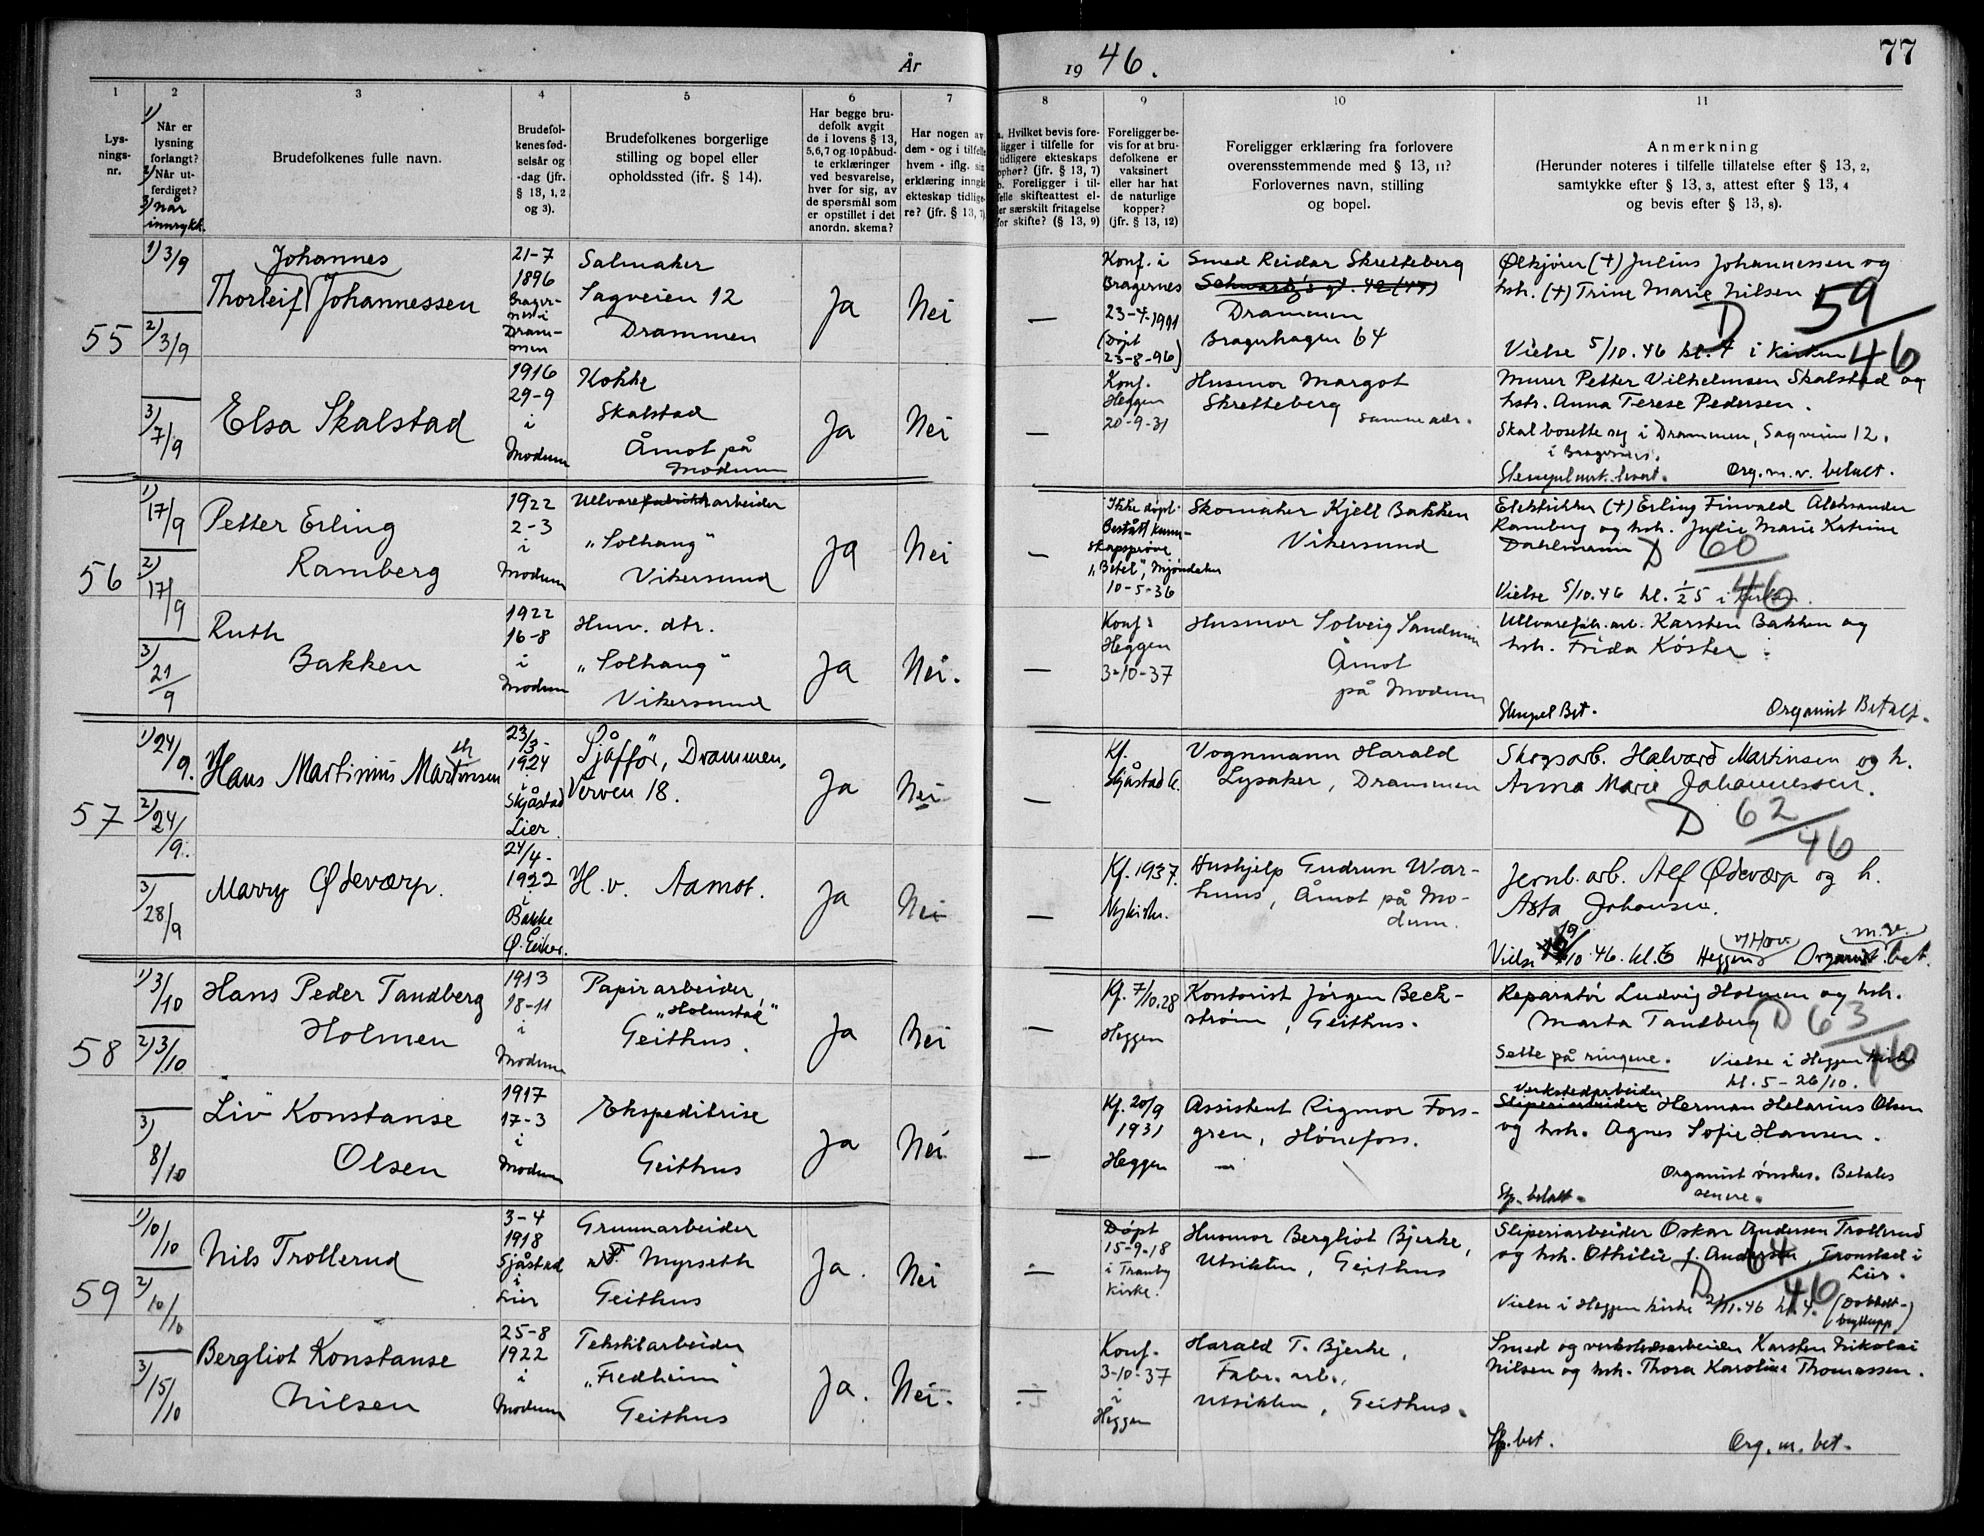 År 19 46. 77
1 2 3 4 5 6 7 8 9 10 11
Lys-
nings-
nr.
1) Når er
lysning
forlangt?
2) Når ut-
ferdiget?
3) når
innrykk.
Brudefolkenes fulle navn.
Brudefol-
kenes fød-
selsår og
-dag (jfr.
§ 13, 1, 2
og 3).
Brudefolkenes borgerlige
stilling og bopel eller
opholdssted (ifr. § 14).
Har begge bru-
defolk avgit
de i lovens § 13,
5,6,7 og 10 påbud-
te erklæringer
ved besvarelse,
hver for sig, av
de spørsmål som
er opstillet i det
anordn. skema?
Har nogen av
dem - og i tilfelle
hvem - iflg. sin
erklæring inngått
ekteskap tidlige-
re? (jfr. § 13, 7)
a. Hvilket bevis fore-
ligger i tilfelle for
tidligere ekteskaps
ophør? (jfr. § 13, 7)
b. Foreligger i til-
felle skifteattest el-
ler særskilt fritagelse
for skifte? (§ 13, 9)
Foreligger be-
vis for at bru-
defolkene er
vaksinert
eller har hat
de naturlige
kopper?
(jfr. § 13, 12)
Foreligger erklæring fra forlovere
overensstemmende med § 13, 11?
Forlovernes navn, stilling
og bopel.
Anmerkning
(Herunder noteres i tilfelle tillatelse efter § 13, 2,
samtykke efter § 13, 3, attest efter § 13, 4
og bevis efter § 13, 8).
55
1) 3/9
2) 3/9
3) 7/9
Johannes
Thorleif Johannessen
21-7
1896
Brager-
nes i
Dram-
men
Salmaker
Sagveien 12
Drammen
Ja
Nei
—
Konf. i
Bragernes
23-4-1911
(Døpt
23-8-96)
Smed Reidar Skretteberg
Schwartz's gt. 42 (47)
Drammen
Bragerhagen 64
Ølkjører (+) Julius Johannessen og
hstr. (+) Trine Marie Nilsen
D 59/46
Vielse 5/10.46 kl. 4 i kirken
Elsa Skalstad
1916
29-9
i
Modum
Kokke
Skalstad
Åmot på
Modum
Ja
Nei
—
Konf.
Heggen
20-9-31
Husmor Margot
Skretteberg samme adr.
Murer Petter Vilhelmsen Skalstad og
hstr. Anna Terese Pedersen.
Skal bosette seg i Drammen, Sagveien 12.
i Bragernes.
Org. m. v. betalt.
56
1) 17/9
2) 17/9
3) 21/9
Petter Erling
Ramberg
1922
2-3
i
Modum
Ullvarefabrikkarbeider
"Solhaug"
Vikersund
Ja
Nei
—
Ikke døpt.
Bestått kunn-
skapsprøve
i "Betel", Mjøndalen
10-5-36
Skomaker Kjell Bakken
Vikersund
Elektriker (+) Erling Finvald Aleksander
Ramberg og hstr. Julie Marie Katrine
Dahlmann D 60/46
Vielse 5/10.46 kl. ½5 i kirken.
Ruth
Bakken
1922
16-8
i
Modum
Husv. dtr.
"Solhaug"
Vikersund
Ja
Nei.
—
Konf.
Heggen
3-10-37
Husmor Solveig Sandum
Åmot
på Modum
Ullvarefabr. arb. Karsten Bakken og
hstr. Frida Köster.
Stempel Bet. Organist Betalt.
57
1) 24/9.
2) 24/9.
3) 28/9
Hans Martinius Martinsen
23/3-
1924
i
Skjåstad
Lier.
Sjåffør, Drammen,
Verven 18.
Ja
Nei
—
Kf.
Skjåstad k.
Vognmann Harald
Lysaker, Drammen
Skogsarb. Halvard Martinsen og h.
Anna Marie Johannessen.
D 62/46
Marry Ødeværp.
24/4-
1922
i
Bakke
Ø. Eiker.
H. v. Aamot.
Ja
Nei
—
Kf. 1937.
Nykirke.
Hushjelp Gudrun War-
hus, Åmot på Mo-
dum.
Jernb. arb. Alf Ødeværp og h.
Asta Johansen.
Vielse 19/10.46 kl. 6 Heggen v/Hov. Organist m.v. bet.
58
1) 3/10
2) 3/10
3) 8/10
Hans Peder Tandberg
Holmen
1913
18-11
i
Modum
Papirarbeider,
"Holmstad"
Geithus.
Ja
Nei
—
Kf. 7/10.28
Heggen
Kontorist Jørgen Beck-
strøm, Geithus.
Reparatør Ludvig Holmen og hstr.
Marta Tandberg D 63/46
Sette på ringene. Vielse i Heggen kirke
kl. 5 - 26/10.
Liv Konstanse
Olsen
1917
17-3
i
Modum
Ekspeditrise
Geithus
Ja
Nei
—
Kf. 20/9
1931
Heggen
Assistent Rigmor Fors-
gren, Hønefoss.
—
Verkstedarbeider
Sliperiarbeider Herman Helarius Olsen
og hstr. Agnes Sofie Hansen.
Organist ønskes. Betales
senere.
Stp. betalt.
59
1) 10/10
2) 10/10
3) 15/10
Nils Trollerud
3-4
1918
Sjåstad
i
Lier
Gruvearbeider
Myrseth
Geithus
Ja.
Nei
—
Døpt
15-9-18
i Tranby
kirke.
Husmor Bergliot Bjerke,
Utsikten, Geithus
Sliperiarbeider Oskar Andersen Trollerud
og hstr. Othilie f. Andersen, Tronstad i
Lier.
D 64/46
Vielse i Heggen kirke 2/11.46 kl. 4. (Dobbelt-
bryllupp)
Bergliot Konstanse
Nilsen
25-8
1922
i
Modum
Tekstilarbeider
"Fredheim"
Geithus
Ja.
Nei.
—
Konf.
3-10-37
i
Heggen
Harald T. Bjerke,
Fabr. arb.,
Utsikten, Geithus.
Smed og verkstedsarbeider Karsten Nikolai
Nilsen og hstr. Thora Karoline Thomassen.
Stp. bet. Org. m. bet.